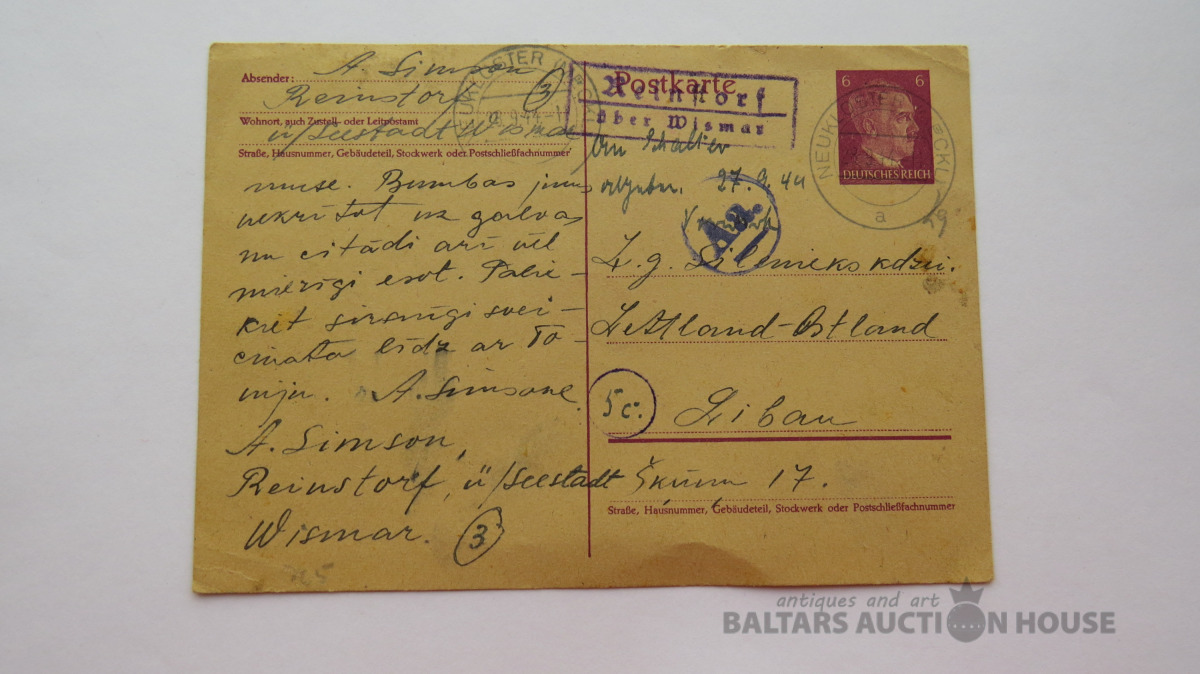 Absender: A Simson
Reinstorf (3)
Wohnort, auch Zustell- oder Leitpostamt
ü/Seestadt Wismar
Straße, Hausnummer, Gebäudeteil, Stockwerk oder Postschließfachnummer
muse. Bumbas jums
nekrītot uz galvas
nu citādi arī vēl
mierīgi esot. Palie-
kiet sirsnīgi svei-
cināta līdz ar To-
niju. A. Simsone.
A. Simson,
Reinstorf, ü/Seestadt
Wismar. (3)
Postkarte
Reinstorf
über Wismar
An Schalter
abgeben. 27.9.44
Aa.
6 6
DEUTSCHES REICH
NEUKLOSTER (MECKL)
a
29
L.g. Silenieks kdzi.
Lettland-Ostland
5c.
Libau
Šķūņu 17.
Straße, Hausnummer, Gebäudeteil, Stockwerk oder Postschließfachnummer
antiques and art
BALTARS AUCTION HOUSE